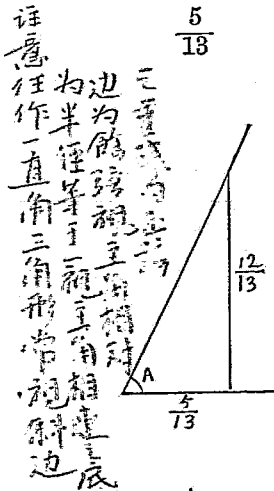 5
13
注意任作一直角三角形常視斜边
为半徑等于一視主角相連之底
边为餘弦視主角相对
之垂线为正弦
12
13
A
5
13